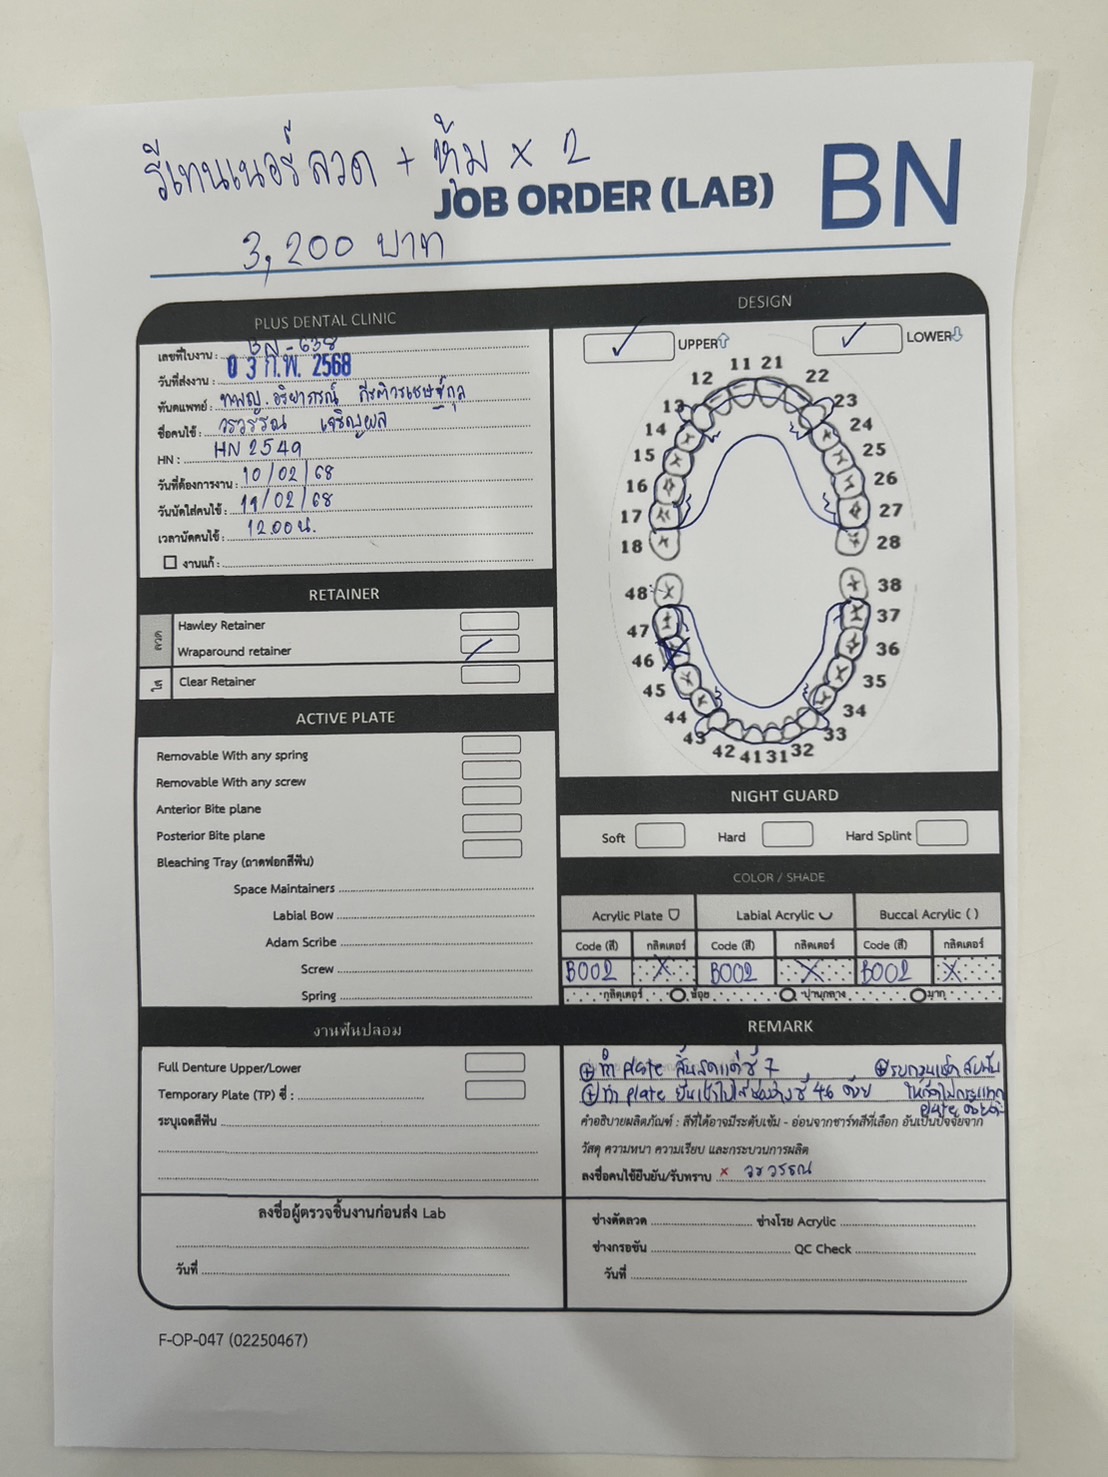 รีเทนเนอร์ลวด + หุ้ม x 2
JOB ORDER (LAB)
BN
3,200 บาท
PLUS DENTAL CLINIC
เลขที่ใบงาน : BN-638
วันที่ส่งงาน : 03 ก.พ. 2568
ทันตแพทย์ : ทพญ. อริยาภรณ์
ชื่อคนไข้ : วรวรรณ เจริญผล
HN : HN 2549
วันที่ต้องการงาน : 10/02/68
วันนัดใส่คนไข้ : 11/02/68
เวลานัดคนไข้ : 12.00 น.
งานแก้ :
RETAINER
ลวด
Hawley Retainer
Wraparound retainer
ใส
Clear Retainer
ACTIVE PLATE
Removable With any spring
Removable With any screw
Anterior Bite plane
Posterior Bite plane
Bleaching Tray (ถาดฟอกสีฟัน)
Space Maintainers
Labial Bow
Adam Scribe
Screw
Spring
งานฟันปลอม
Full Denture Upper/Lower
Temporary Plate (TP) ซี่ :
ระบุเฉดสีฟัน
ลงชื่อผู้ตรวจชิ้นงานก่อนส่ง Lab
วันที่
DESIGN
✓ UPPER
✓ LOWER
11 21
12 22
13 23
14 24
15 25
16 26
17 27
18 28
48 38
47 37
46 36
45 35
44 34
43 33
42 41 31 32
NIGHT GUARD
Soft Hard Hard Splint
COLOR / SHADE
Acrylic Plate Labial Acrylic Buccal Acrylic ( )
Code (สี) กลิตเตอร์ Code (สี) กลิตเตอร์ Code (สี) กลิตเตอร์
B002 X B002 X B002 X
กลิตเตอร์ น้อย ปานกลาง มาก
REMARK
ทำ plate สิ้นสุดแค่ซี่ 7
ทำ plate ยื่นเข้าไปใส่ช่องว่างซี่ 46 ด้วย
plate
คำอธิบายผลิตภัณฑ์ : สีที่ได้อาจมีระดับเข้ม - อ่อนจากชาร์ทสีที่เลือก อันเป็นปัจจัยจาก
วัสดุ ความหนา ความเรียบ และกระบวนการผลิต
ลงชื่อคนไข้ยืนยัน/รับทราบ x วรวรรณ
ช่างดัดลวด ช่างโรย Acrylic
ช่างกรอขัน QC Check
วันที่
F-OP-047 (02250467)